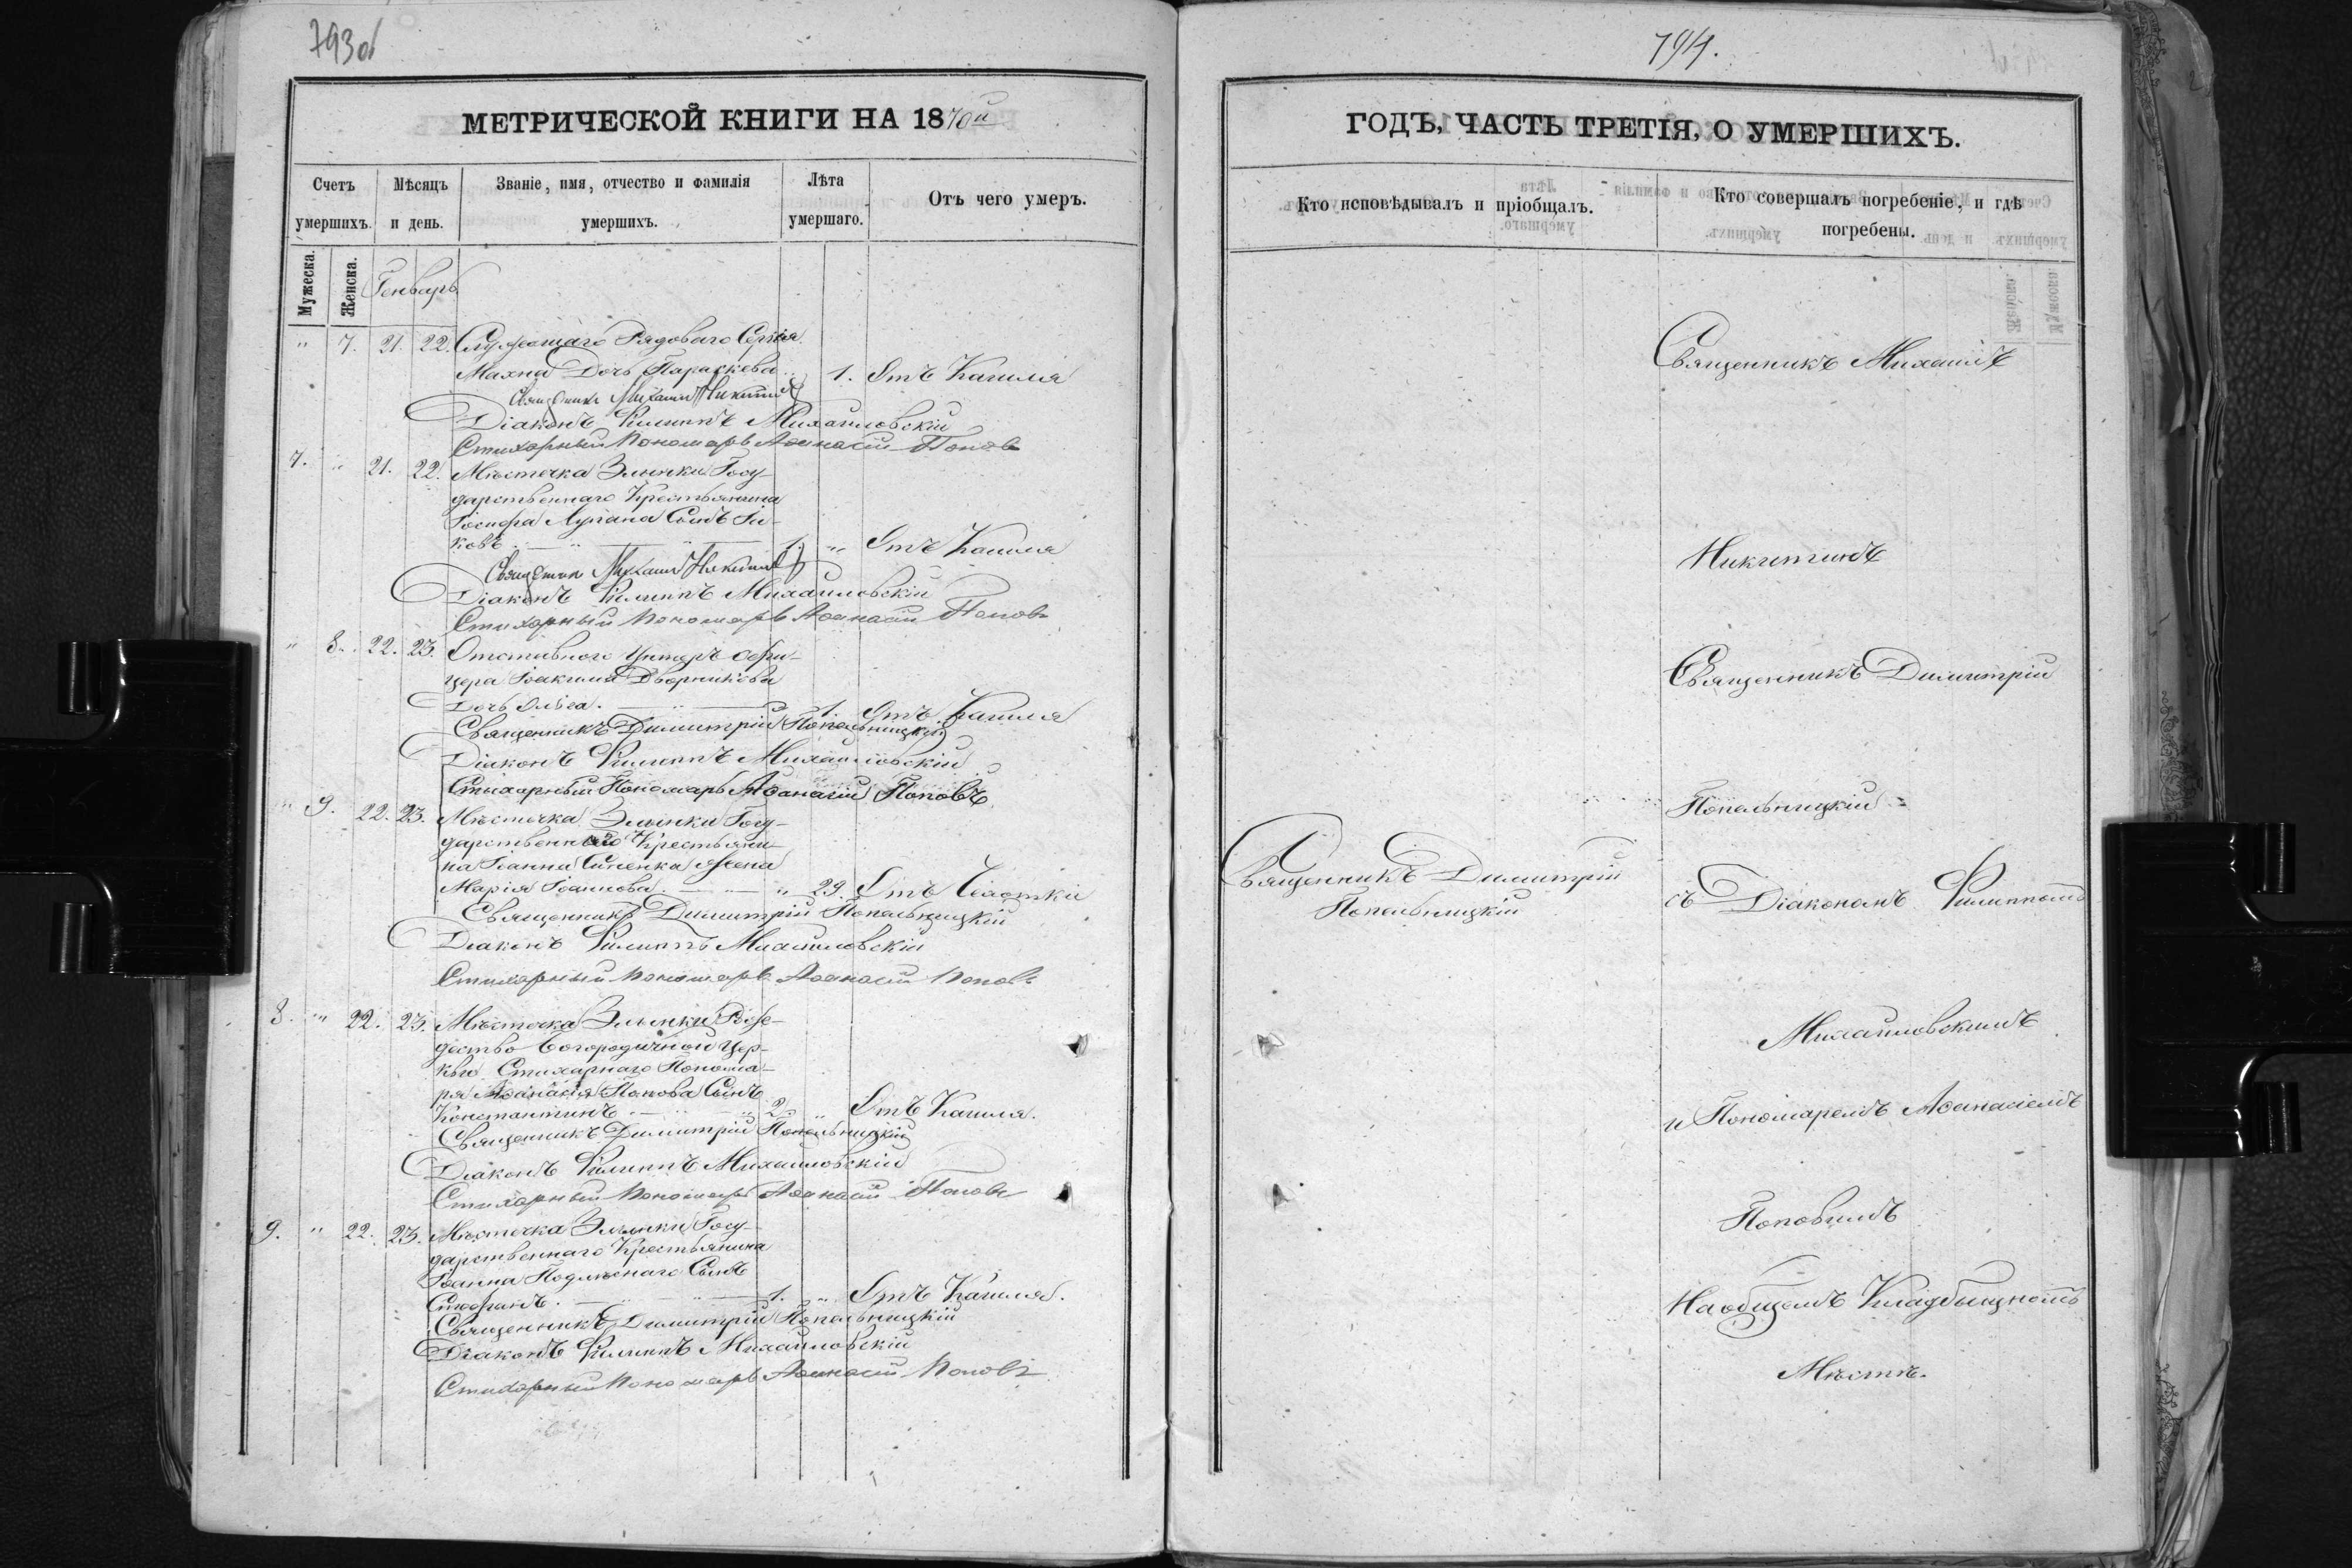 793об
МЕТРИЧЕСКОЙ КНИГИ НА 1870й
Счетъ умершихъ.
Мѣсяцъ и день.
Званіе, имя, отчество и фамилія умершихъ.
Лѣта умершаго.
Отъ чего умеръ.
Мужеска.
Женска.
Генварь
" 7. 21. 22. Служащаго Рядоваго Сергія
Махна Дочь Параскева .. 1. Отъ Кашля
Священникъ Михаилъ Никитинъ
Діаконъ Филиппъ Михайловскій
Стихарный Пономарь Аѳанасій Поповъ
7. " 21. 22. Мѣстечка Злынки Госу-
дарственнаго Крестьянина
Іосифа Лупана Сынъ Іа-
ковъ. — " — " — 1. " Отъ Кашля
Священникъ Михаилъ Никитинъ
Діаконъ Филиппъ Михайловскій
Стихарный Пономарь Аѳанасій Поповъ
" 8. 22. 23. Отставного Унтеръ Офи-
цера Іоакима Дворникова
Дочь . — " — " 1. Отъ Кашля
Священникъ Димитрій Попельницкій
Діаконъ Филиппъ Михайловскій
Стихарный Пономарь Аѳанасій Поповъ
" 9. 22. 23. Мѣстечка Злынки Госу-
дарственнаго Крестьяни-
на Іоанна жена
Марія Іоаннова. — — " 29. Отъ Чахотки
Священникъ Димитрій Попельницкій
Діаконъ Филиппъ Михайловскій
Стихарный Пономарь Аѳанасій Поповъ
8. " 22. 23. Мѣстечка Злынки Рож-
дество Богородичной Цер-
кви Стихарнаго Понома-
ря Аѳанасія Попова Сынъ
Константинъ. — " — " 2. " Отъ Кашля.
Священникъ Димитрій Попельницкій
Діаконъ Филиппъ Михайловскій
Стихарный Пономарь Аѳанасій Поповъ
9. " 22. 23. Мѣстечка Злынки Госу-
дарственнаго Крестьянина
Іоанна Сынъ
Стефанъ. — " — " — 1. " Отъ Кашля.
Священникъ Димитрій Попельницкій
Діаконъ Филиппъ Михайловскій
Стихарный Пономарь Аѳанасій Поповъ
794.
ГОДЪ, ЧАСТЬ ТРЕТІЯ, О УМЕРШИХЪ.
Кто исповѣдывалъ и пріобщалъ.
Кто совершалъ погребеніе, и гдѣ
погребены.
Священникъ Михаилъ
Никитинъ
Священникъ Димитрій
Попельницкій
Священникъ Димитрій
Попельницкій
съ Діакономъ Филиппомъ
Михайловскимъ
и Пономаремъ Аѳанасіемъ
Поповымъ
На общемъ Кладбищномъ
Мѣстѣ.